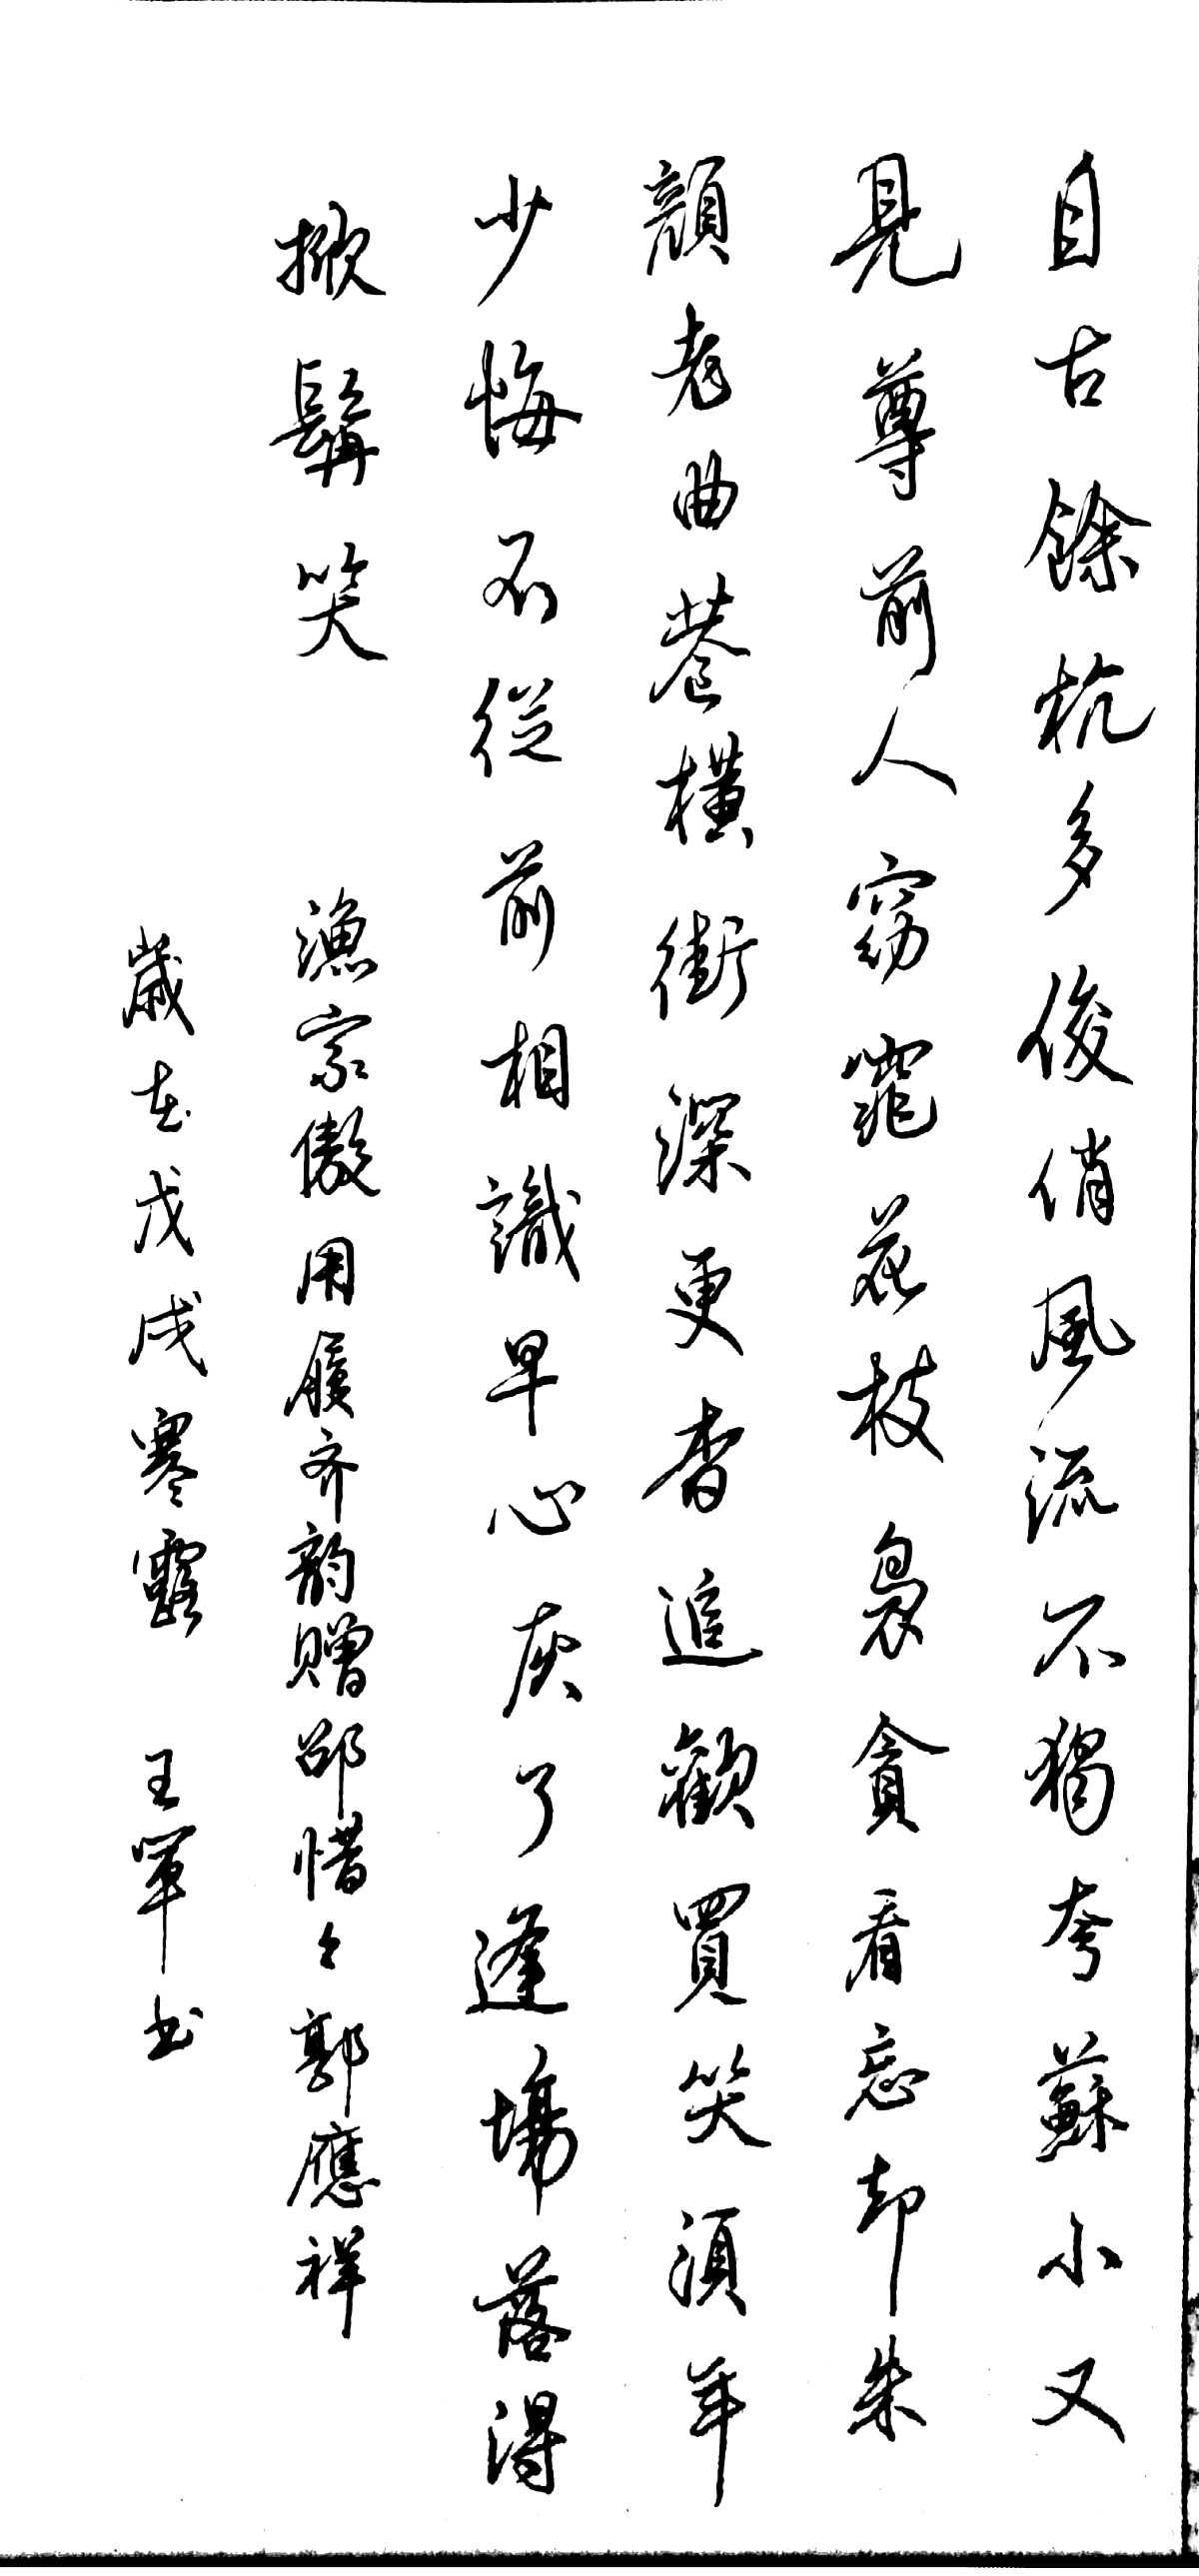 自古餘杭多俊俏風流不獨夸蘇小又
見尊前人窈窕花枝裊貪看忘却朱
顏老曲巷橫街深更杳追歡買笑須年
少悔不從前相識早心灰了逢場落得
掀髯笑 漁家傲用履齐韵赠邵惜々郭應祥
歲在戊戌寒露 王軍书